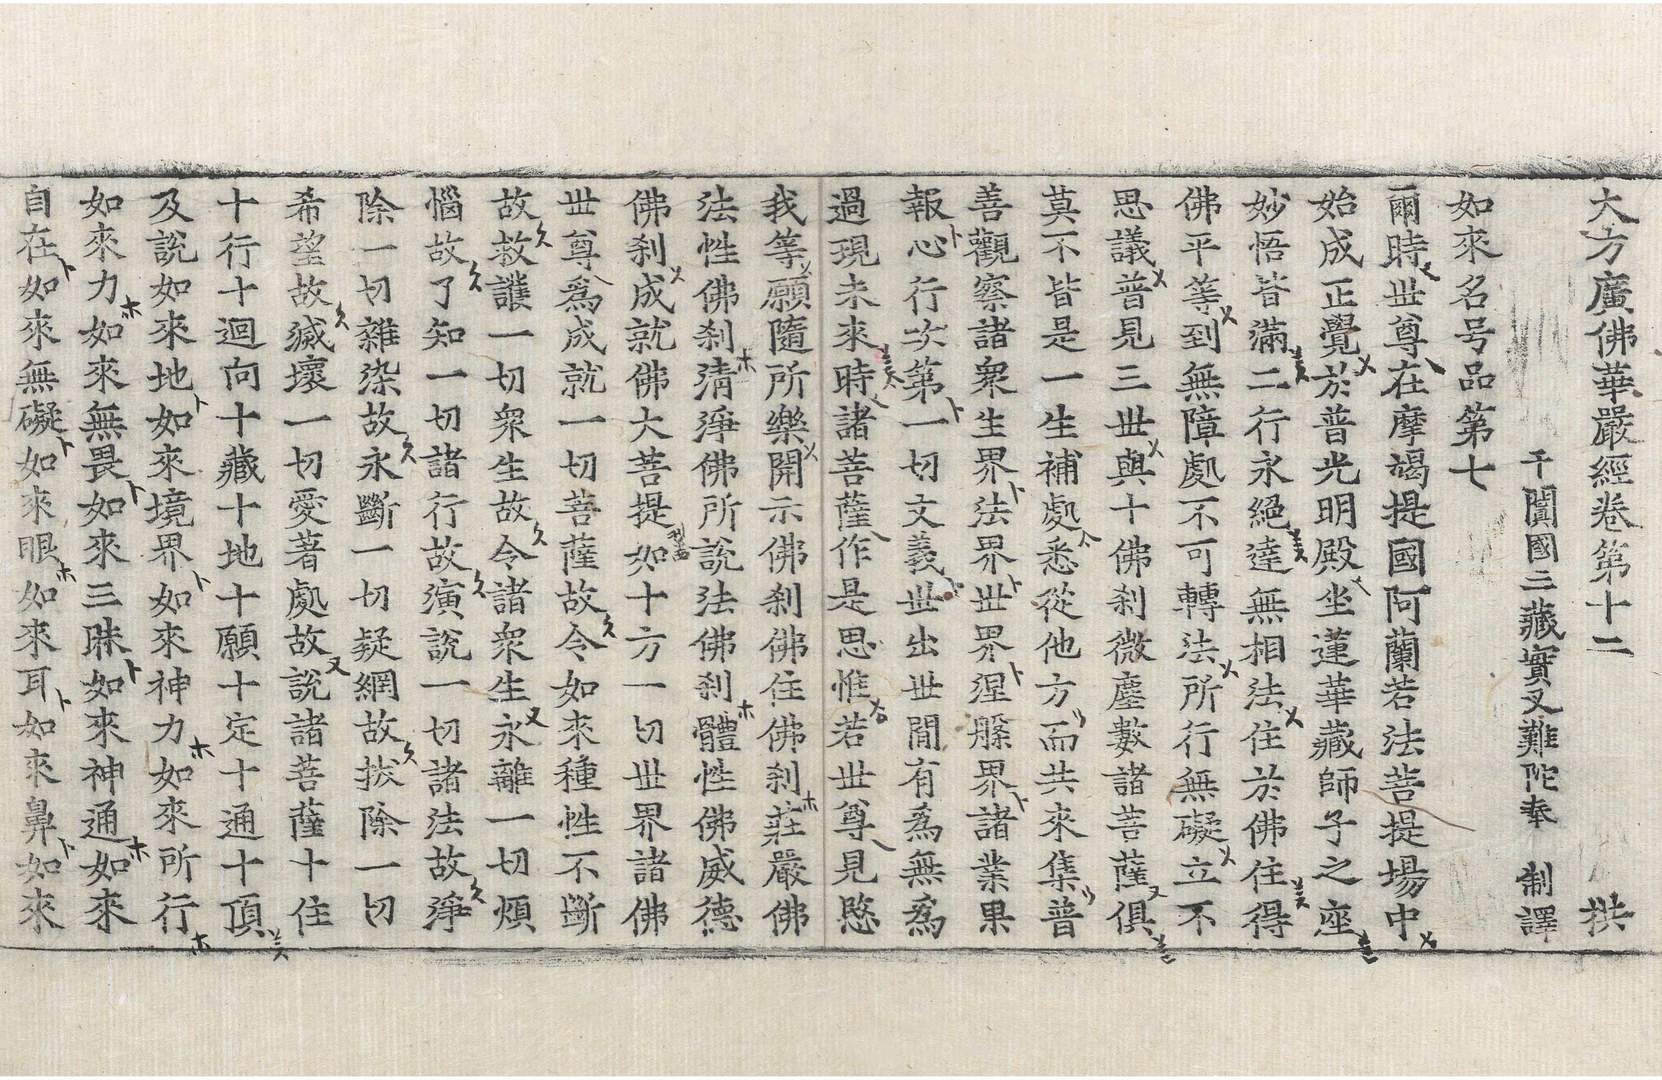 大方廣佛華嚴經卷第十二 拱
于闐國三藏實叉難陁奉 制譯
如來名号品第七
爾時世尊在摩竭提國阿蘭若法菩提場中
始成正覺於普光明殿坐蓮華藏師子之座
妙悟皆滿二行永絕達無相法住於佛住得
佛平等到無障處不可轉法所行無礙立不
思議普見三世與十佛刹微塵數諸菩薩俱
莫不皆是一生補處悉從他方而共來集普
善觀察諸衆生界法界世界涅槃界諸業果
報心行次第一切文義世出世閒有爲無爲
過現未來時諸菩薩作是思惟若世尊見愍
我等願隨所樂開示佛刹佛住佛刹莊嚴佛
法性佛刹清淨佛所說法佛刹體性佛威德
佛刹成就佛大菩提如十方一切世界諸佛
世尊爲成就一切菩薩故令如來種性不斷
故救護一切衆生故令諸衆生永離一切煩
惱故了知一切諸行故演說一切諸法故淨
除一切雜染故永斷一切疑網故拔除一切
希望故滅壞一切愛著處故說諸菩薩十住
十行十迴向十藏十地十願十定十通十頂
及說如來地如來境界如來神力如來所行
如來力如來無畏如來三昧如來神通如來
自在如來無礙如來眼如來耳如來鼻如來